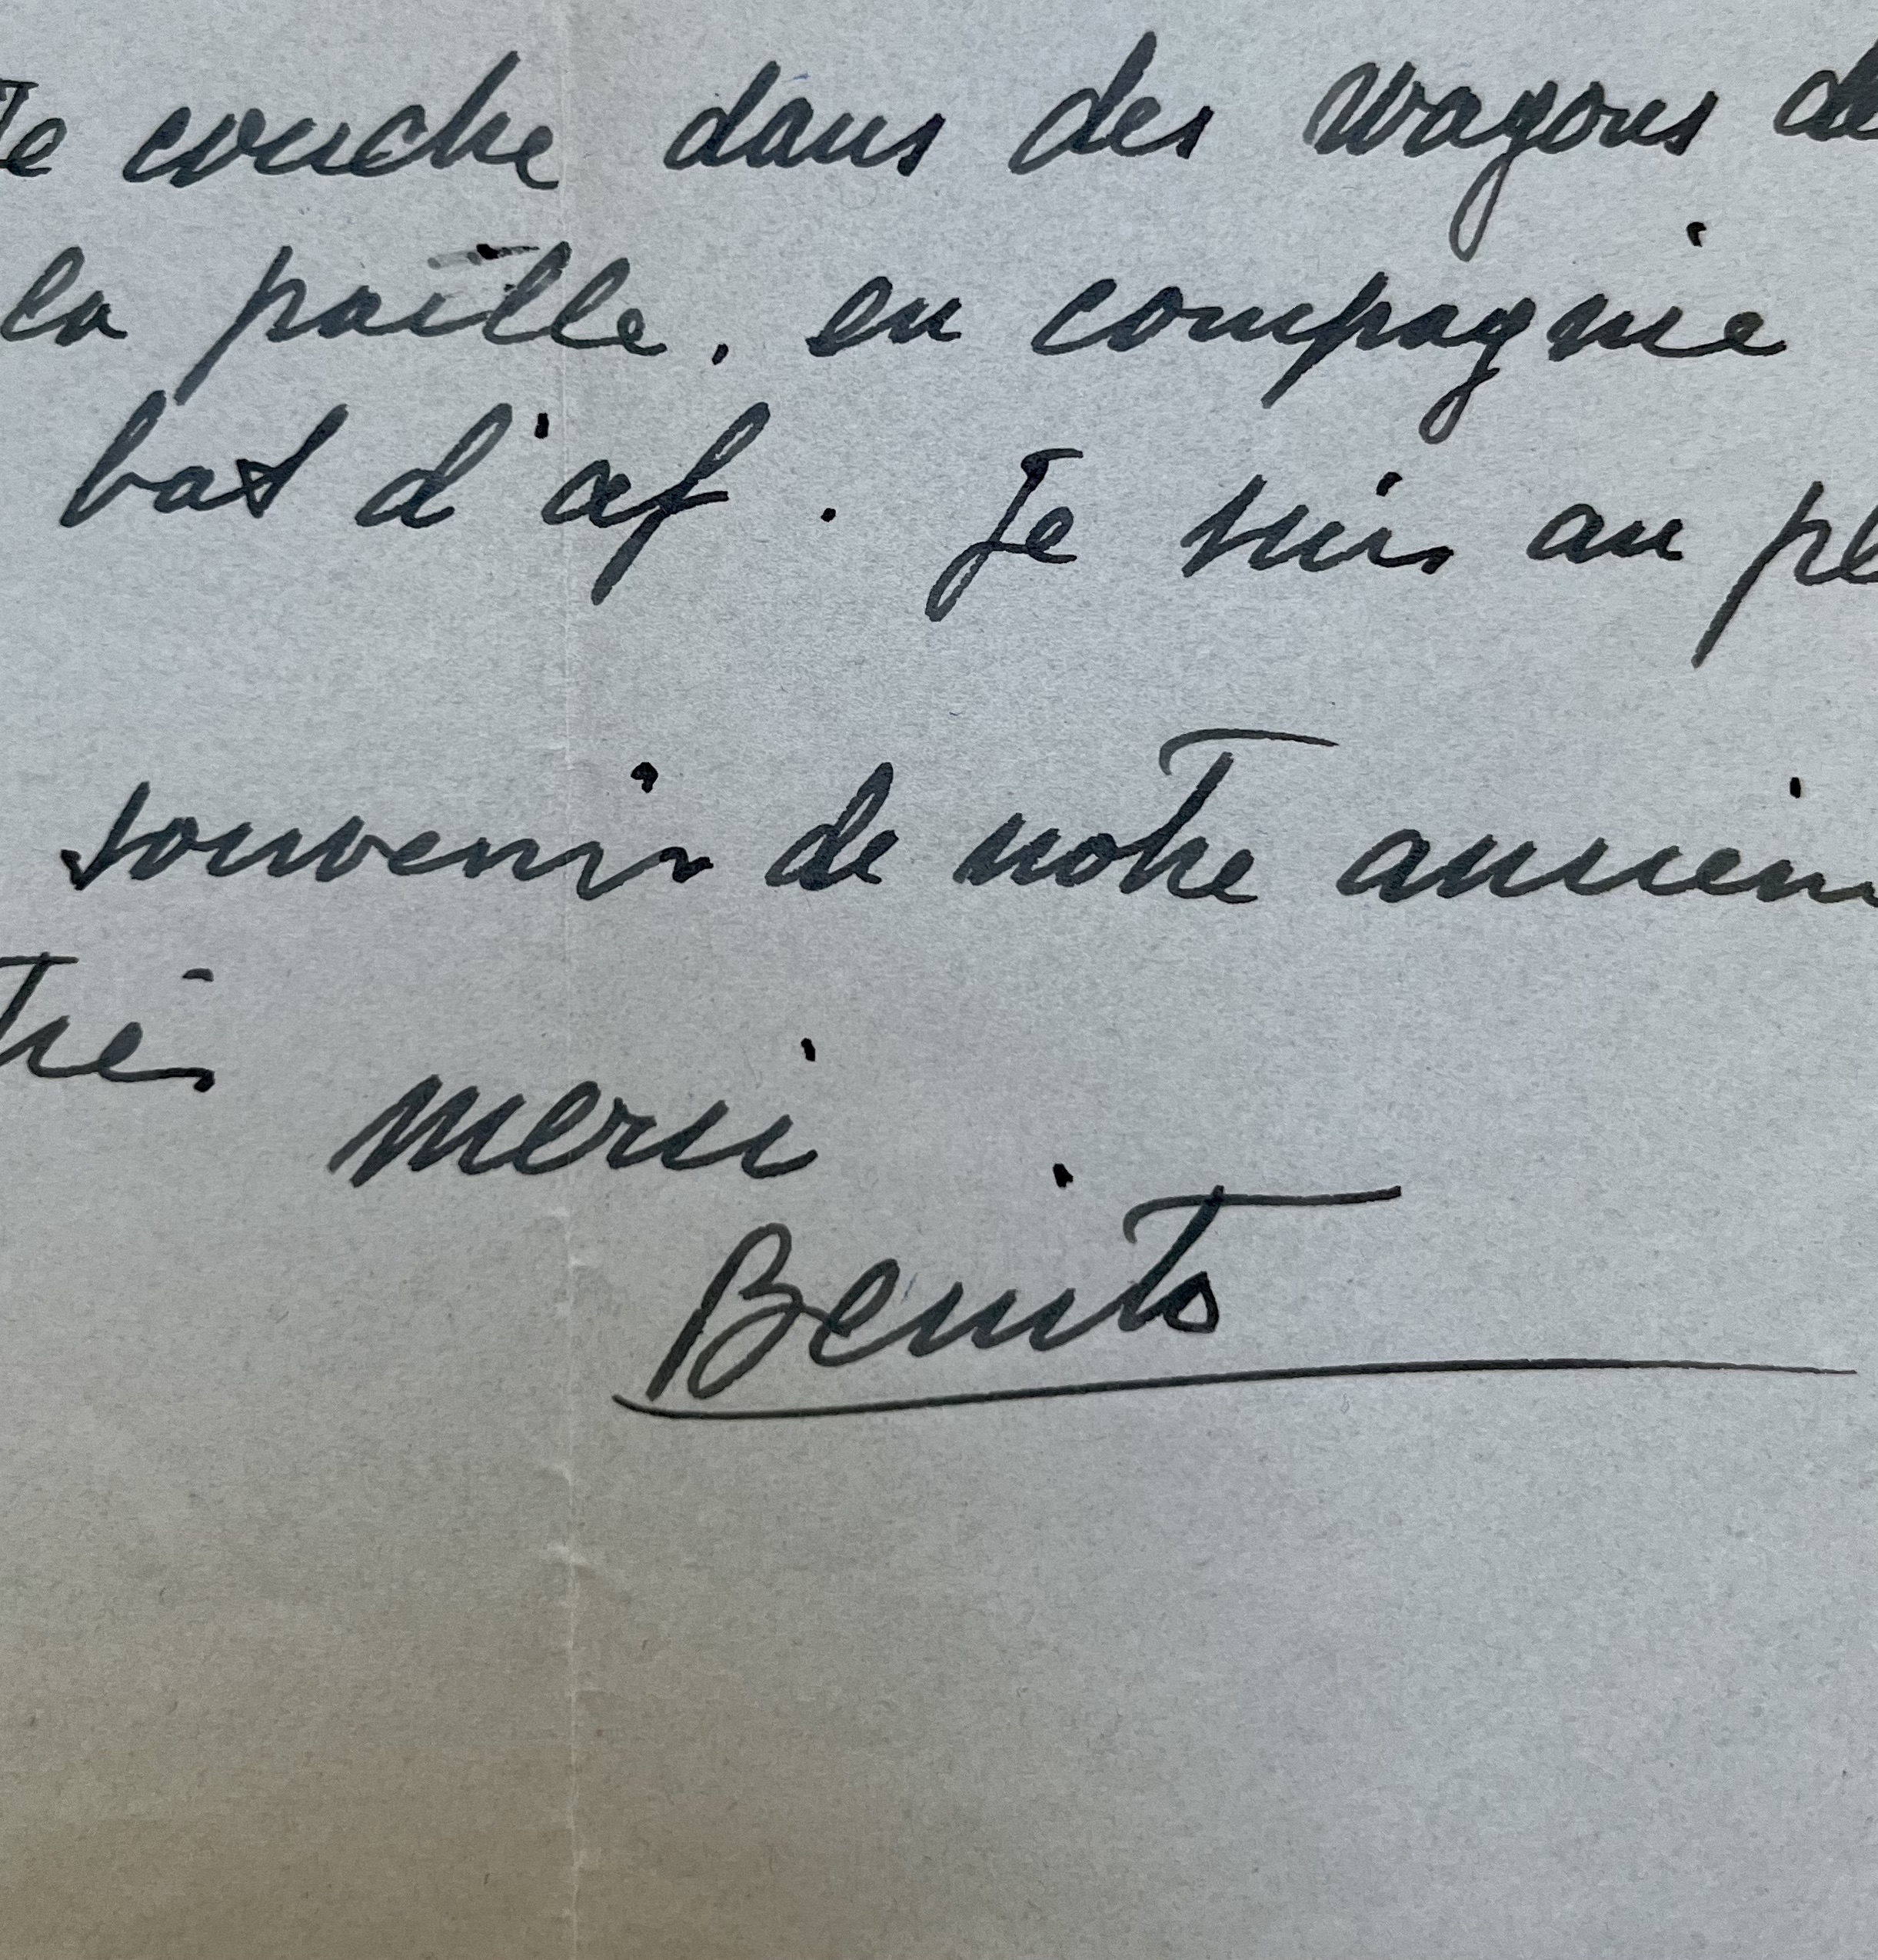 Je couche dans des wagons de
la paille. en compagnie
bat d'af. Je suis au pl
souvenir de notre ancien
Très merci
Benito